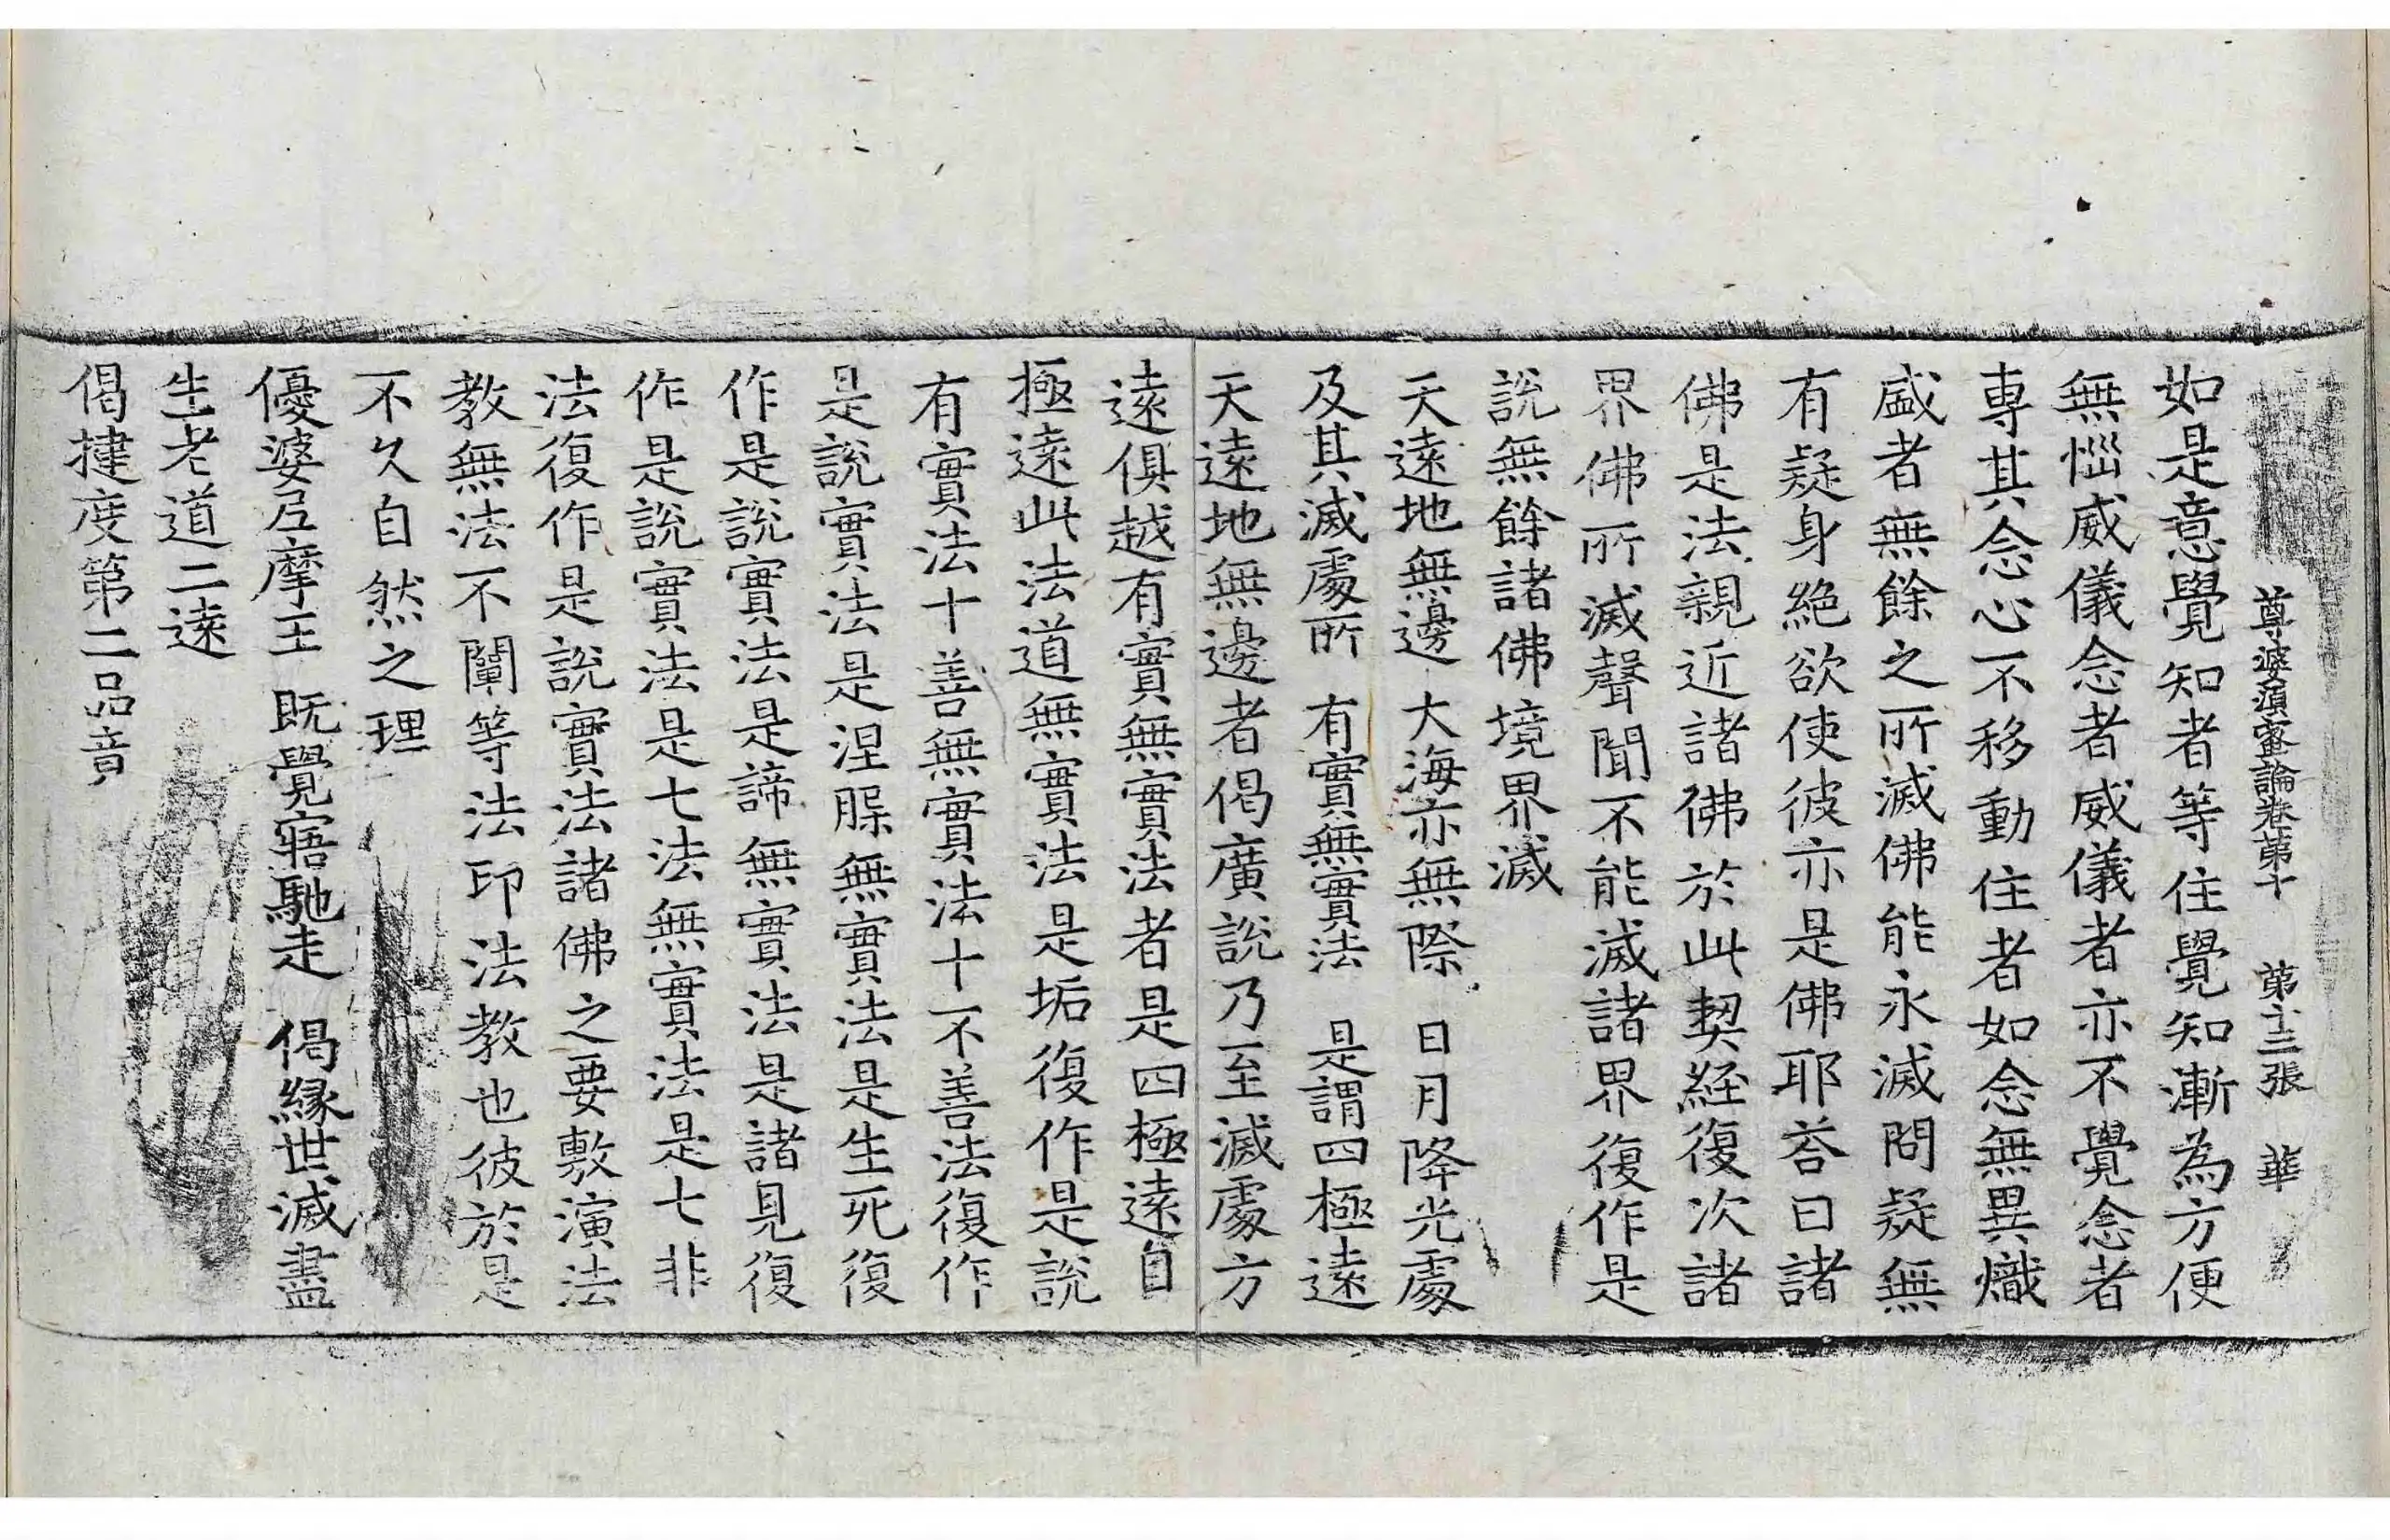 尊婆須蜜論卷第十　第十三張　華
如是意覺知者等住覺知漸為方便
無惱威儀念者威儀者亦不覺念者
専其念心不移動住者如念無異熾
盛者無餘之所滅佛能永滅問疑無
有疑身絶欲使彼亦是佛耶荅曰諸
佛是法親近諸佛於此契経復次諸
界佛所滅聲聞不能滅諸界復作是
說無餘諸佛境界滅
天遠地無邊　大海亦無際　日月降光處
及其滅處所　有實無實法　是謂四極遠
天遠地無邊者偈廣說乃至滅處方
遠俱越有實無實法者是四極遠自
極遠此法道無實法是垢復作是説
有實法十善無實法十不善法復作
是説實法是涅槃無實法是生死復
作是説實法是諦無實法是諸見復
作是説實法是七法無實法是七非
法復作是説實法諸佛之要敷演法
教無法不闡等法印法教也彼於是
不久自然之理
優婆尼摩主　既覺寤馳走　偈縁世滅盡
生老道二遠
偈揵度第二品竟